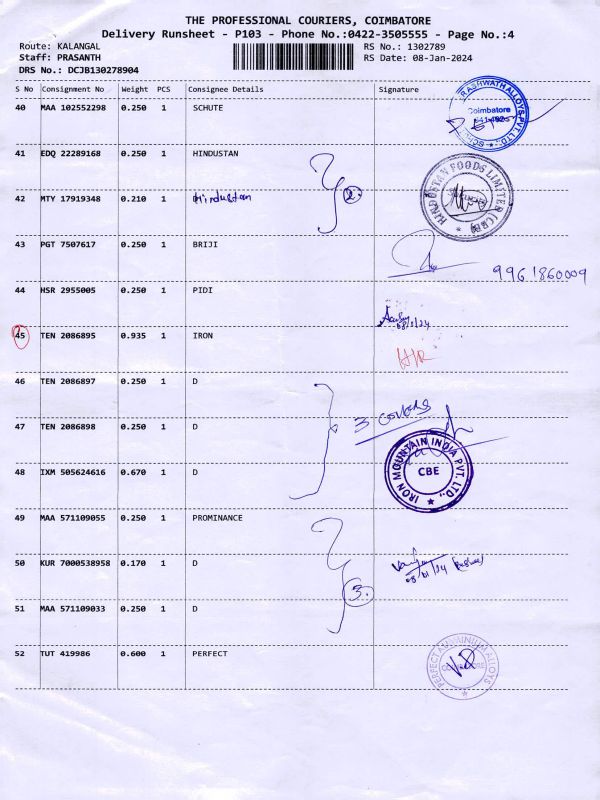 THE PROFESSIONAL COURIERS, COIMBATORE
Delivery Runsheet - P103 - Phone No.:0422-3505555 - Page No.:4
Route: KALANGAL RS No.: 1302789
Staff: PRASANTH RS Date: 08-Jan-2024
DRS No.: DCJB130278904
S No Consignment No Weight PCS Consignee Details Signature
40 MAA 102552298 0.250 1 SCHUTE
Coimbatore
41 EDQ 22289168 0.250 1 HINDUSTAN
HINDUSTAN FOODS LIMITED (CBE)
42 MTY 17919348 0.210 1 Hindustan 2
43 PGT 7507617 0.250 1 BRIJI
9961860009
44 HSR 2955005 0.250 1 PIDI
08/1/24
45 TEN 2086895 0.935 1 IRON
46 TEN 2086897 0.250 1 D
3 covers
47 TEN 2086898 0.250 1 D
IRON MOUNTAIN INDIA PVT. LTD.,
CBE
48 IXM 505624616 0.670 1 D
49 MAA 571109055 0.250 1 PROMINANCE
50 KUR 7000538958 0.170 1 D
08/01/24
3.
51 MAA 571109033 0.250 1 D
52 TUT 419986 0.600 1 PERFECT
PERFECT ALUMINIUM ALLOYS